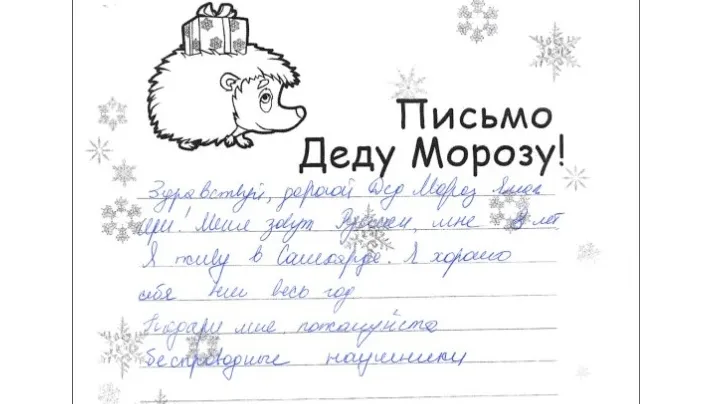 Письмо
Деду Морозу!
Здравствуй, дорогой Дед Мороз Ямал
Ири! Меня зовут мне 8 лет
Я живу в Салехарде. Я хорошо
себя вел весь год
Подари мне, пожалуйста
беспроводные наушники